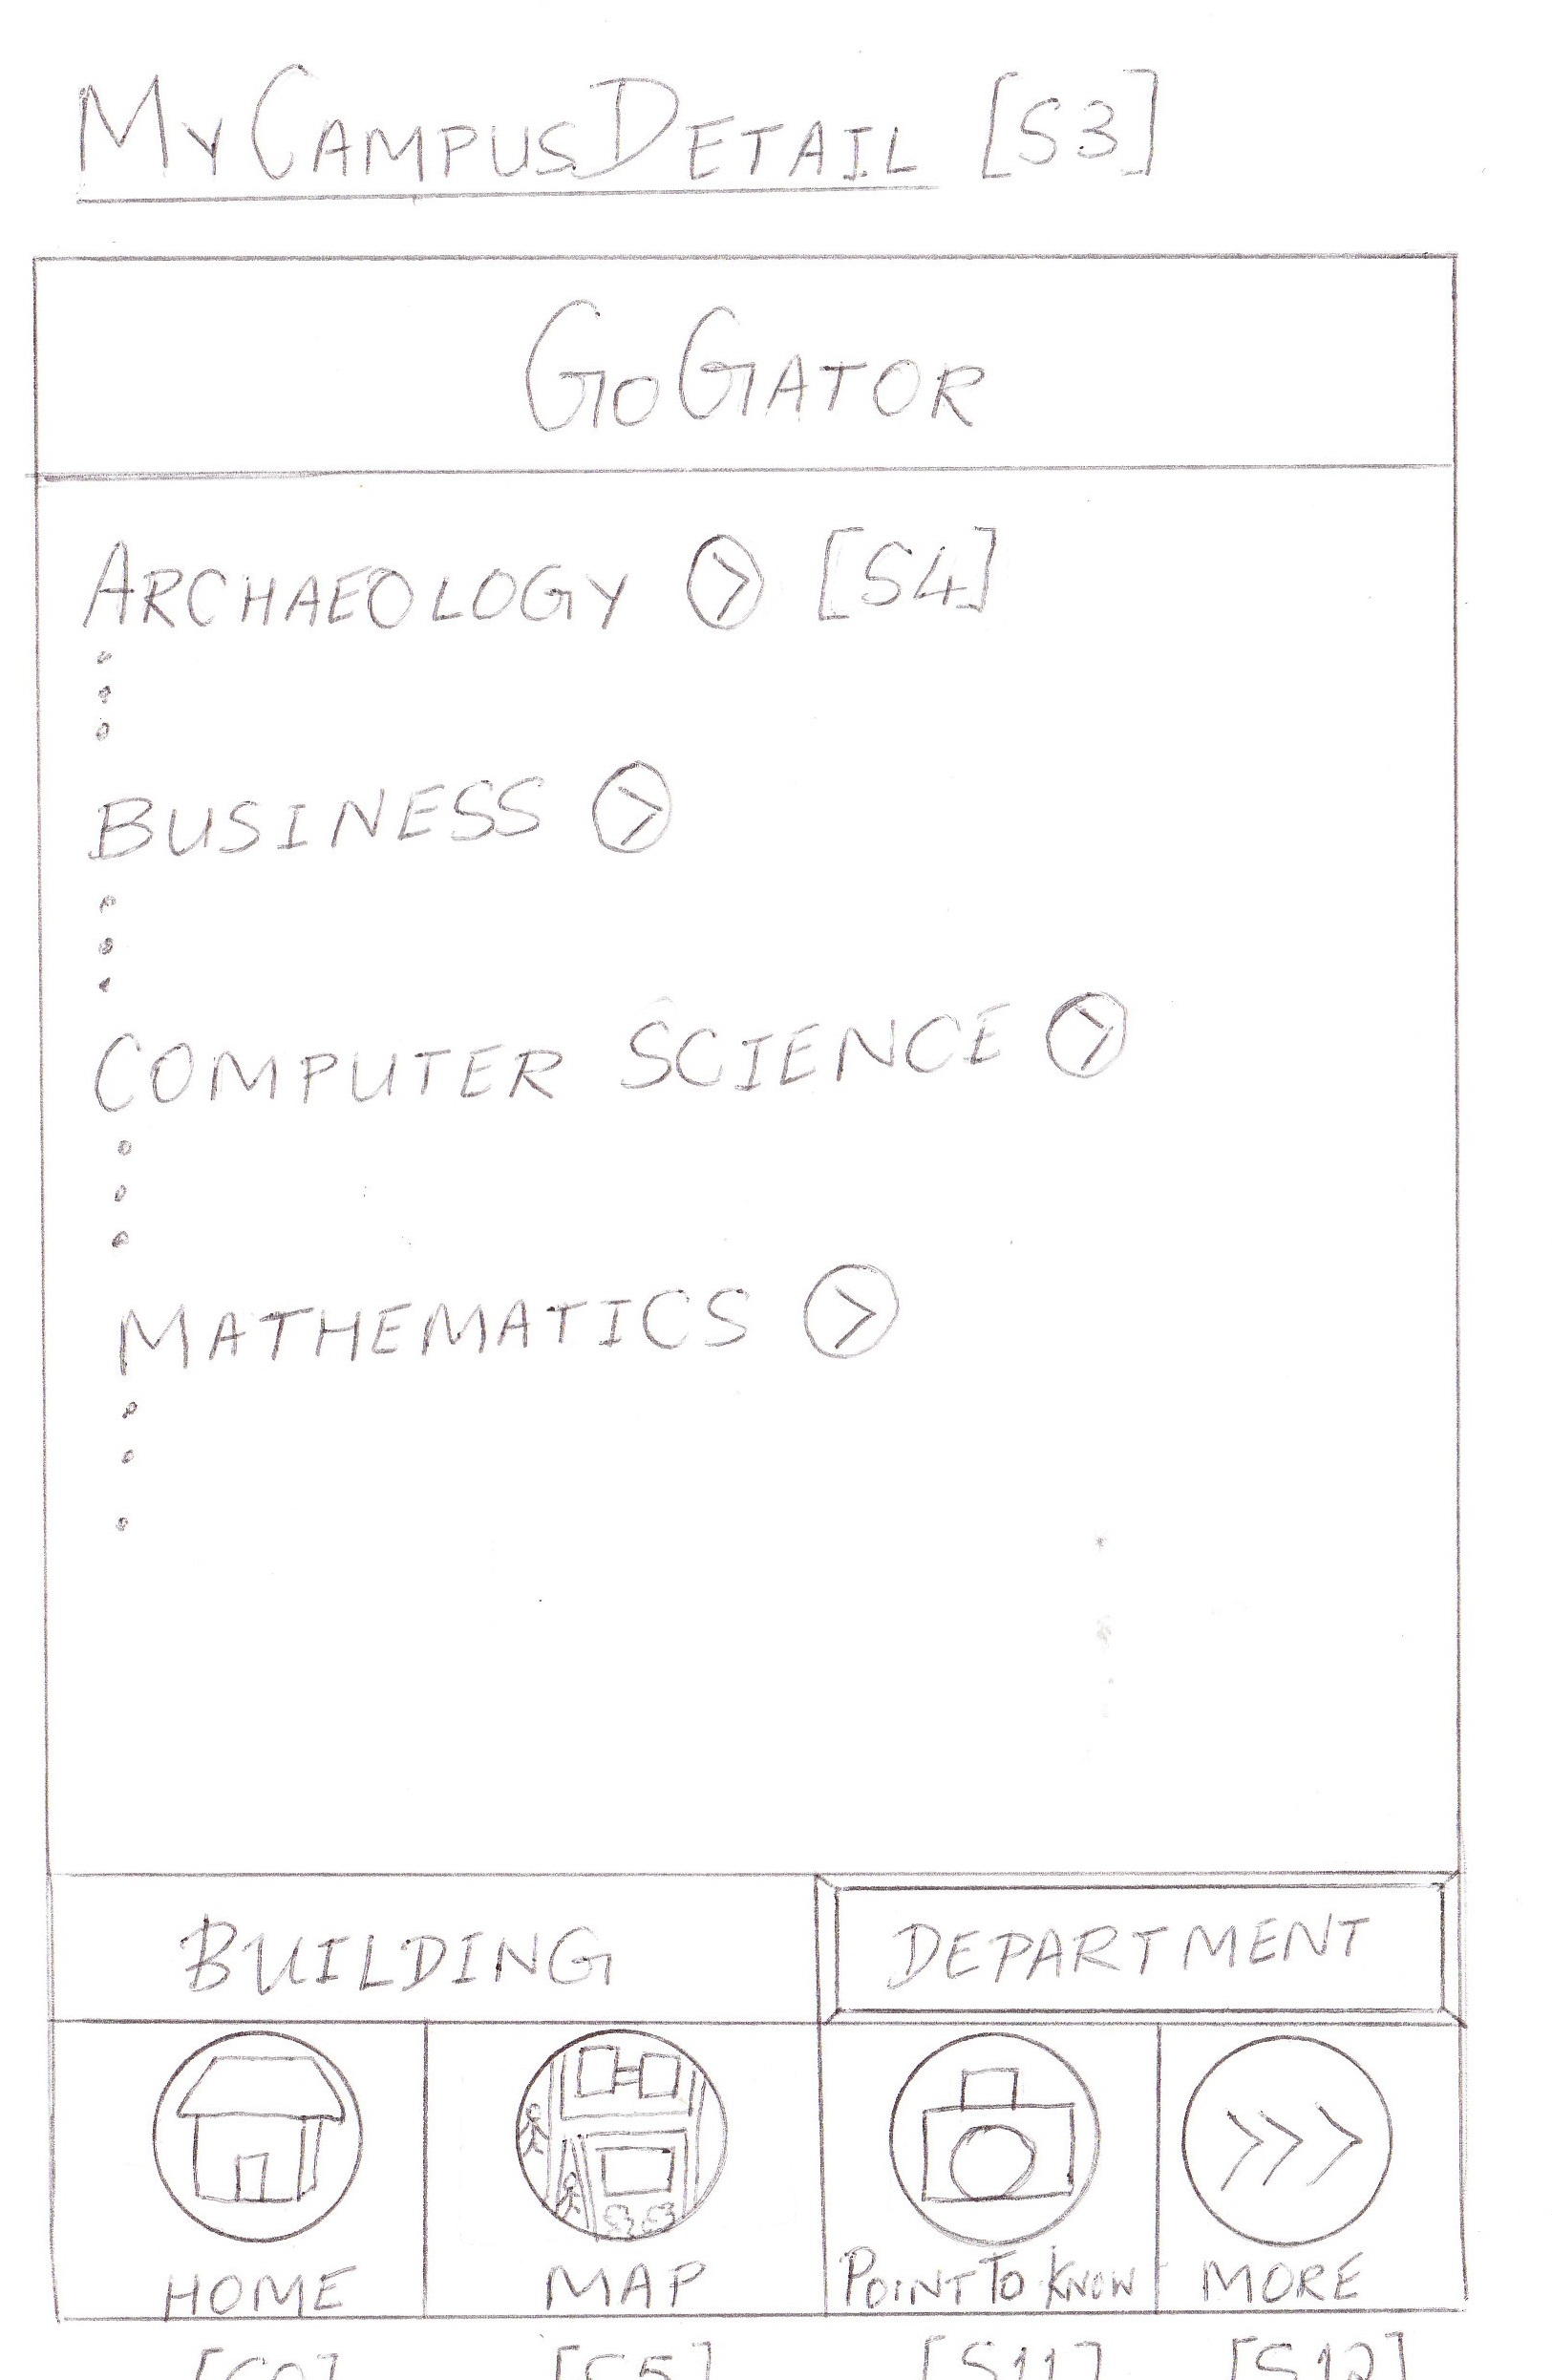 MYCAMPUSDETAIL [S3]
GOGATOR
ARCHAEOLOGY > [S4]
BUSINESS >
COMPUTER SCIENCE >
MATHEMATICS >
BUILDING DEPARTMENT
>>>
HOME MAP POINTTOKNOW MORE
[S5] [S11] [S12]